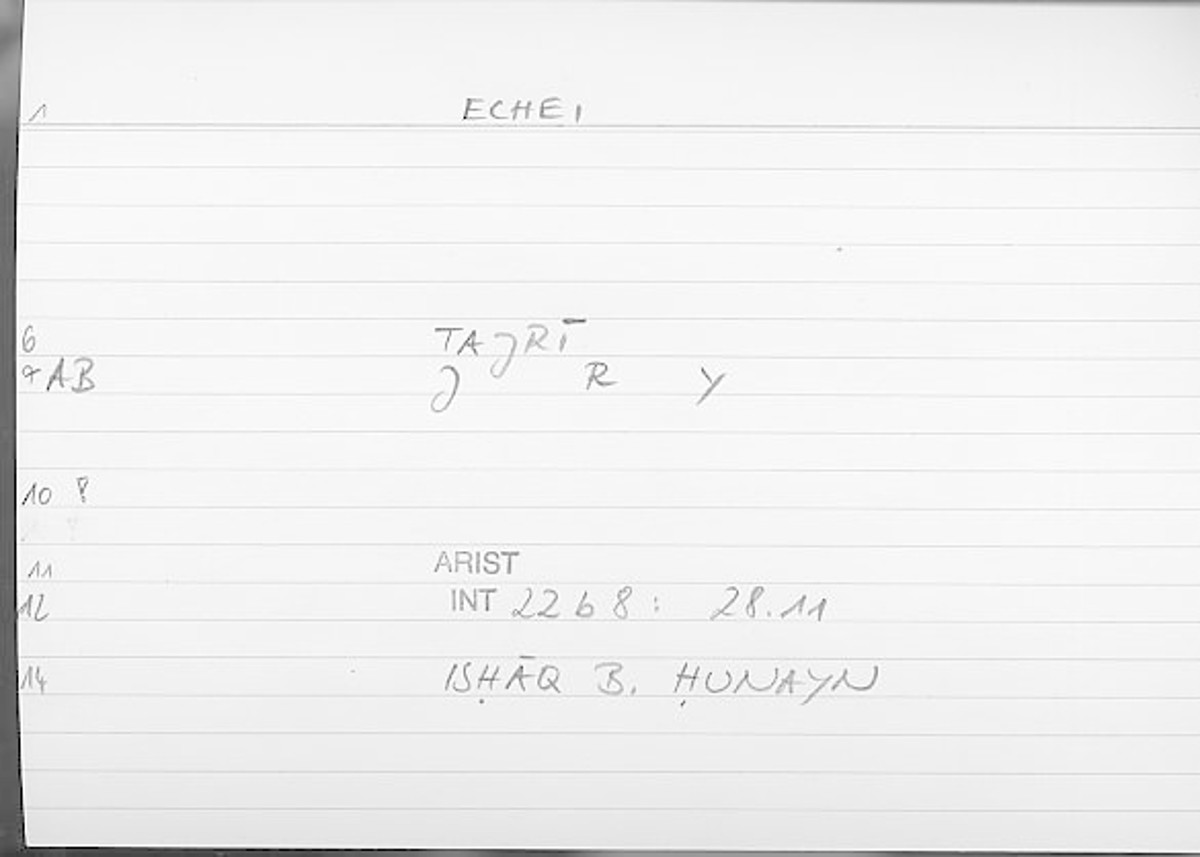 1 ECHEI
6 TAJRĪ
7 AB J R Y
10 ?
11 ARIST
12 INT 22b8: 28.11
14 ISḤĀQ B. ḤUNAYN